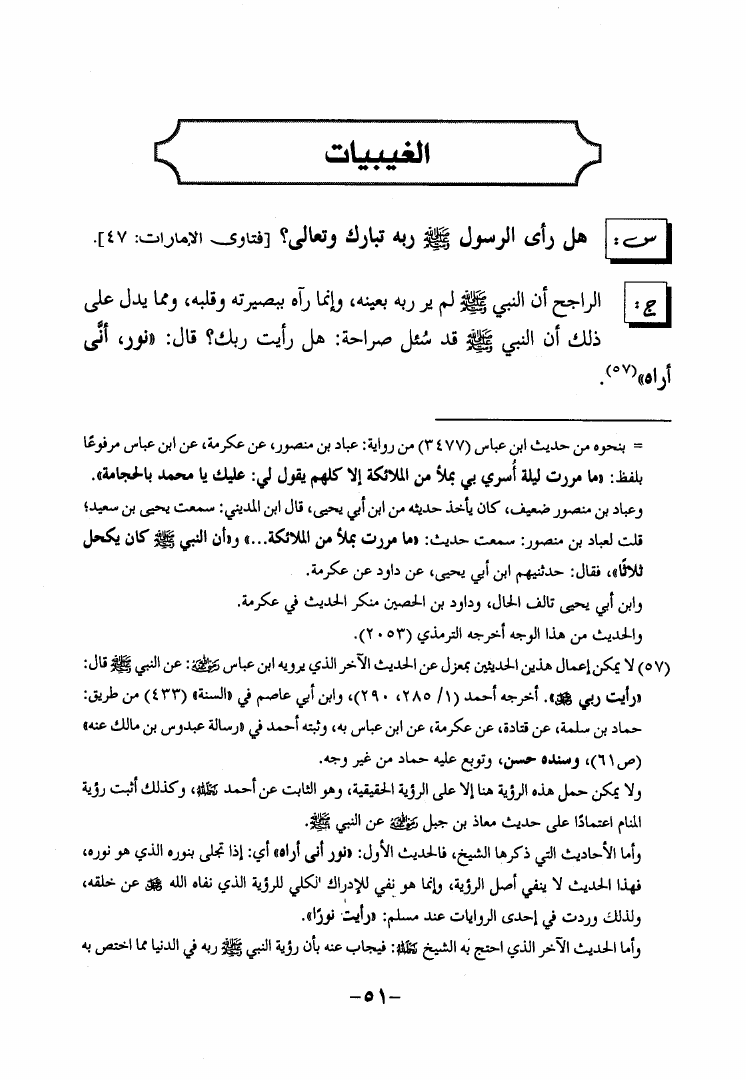 الغيبيات
س: هل رأى الرسول ﷺ ربه تبارك وتعالى؟ [فتاوى الإمارات: ٤٧].
ج: الراجح أن النبي ﷺ لم ير ربه بعينه، وإنما رآه ببصيرته وقلبه، ومما يدل على
ذلك أن النبي ﷺ قد سُئل صراحة: هل رأيت ربك؟ قال: «نور، أنَّى
أراه»(٥٧).
= بنحوه من حديث ابن عباس (٣٤٧٧) من رواية: عباد بن منصور، عن عكرمة، عن ابن عباس مرفوعًا
بلفظ: «ما مررت ليلة أُسري بي بملأ من الملائكة إلا كلهم يقول لي: عليك يا محمد بالحجامة».
وعباد بن منصور ضعيف، كان يأخذ حديثه من ابن أبي يحيى، قال ابن المديني: سمعت يحيى بن سعيد؛
قلت لعباد بن منصور: سمعت حديث: «ما مررت بملأ من الملائكة...» و«أن النبي ﷺ كان يكحل
ثلاثًا»، فقال: حدثنيهم ابن أبي يحيى، عن داود عن عكرمة.
وابن أبي يحيى تالف الحال، وداود بن الحصين منكر الحديث في عكرمة.
والحديث من هذا الوجه أخرجه الترمذي (٢٠٥٣).
(٥٧) لا يمكن إعمال هذين الحديثين بمعزل عن الحديث الآخر الذي يرويه ابن عباس رضي الله عنه: عن النبي ﷺ قال:
«رأيت ربي ﷿». أخرجه أحمد (١/ ٢٨٥، ٢٩٠)، وابن أبي عاصم في «السنة» (٤٣٣) من طريق:
حماد بن سلمة، عن قتادة، عن عكرمة، عن ابن عباس به، وثبته أحمد في «رسالة عبدوس بن مالك عنه»
(ص٦١)، وسنده حسن، وتوبع عليه حماد من غير وجه.
ولا يمكن حمل هذه الرؤية هنا إلا على الرؤية الحقيقية، وهو الثابت عن أحمد رحمه الله، وكذلك أثبت ر�ية
المنام اعتمادًا على حديث معاذ بن جبل رضي الله عنه عن النبي ﷺ.
وأما الأحاديث التي ذكرها الشيخ، فالحديث الأول: «نور أنى أراه» أي: إذا تجلى بنوره الذي هو نوره،
فهذا الحديث لا ينفي أصل الرؤية، وإنما هو نفي للإدراك الكلي للرؤية الذي نفاه الله ﷿ عن خلقه،
ولذلك وردت في إحدى الروايات عند مسلم: «رأيت نورًا».
وأما الحديث الآخر الذي احتج به الشيخ رحمه الله: فيجاب عنه بأن رؤية النبي ﷺ ربه في الدنيا مما اختص به
-٥١-